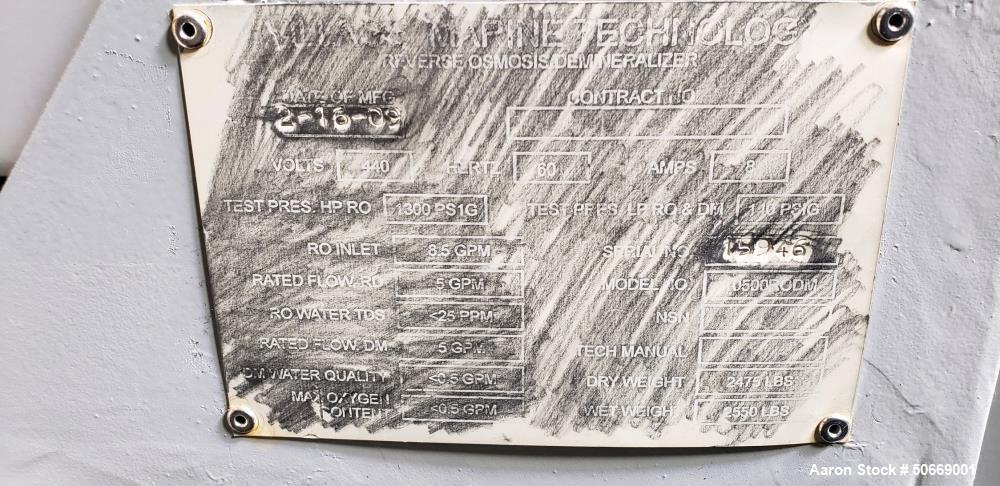 MARINE TECHNOLOG
REVERSE OSMOSIS/DEMINERALIZER
DATE OF MFG CONTRACT NO.
2-16-09
VOLTS 440 HERTZ 60 AMPS 8
TEST PRES. HP RO 1300 PS1G TEST PRES. LP RO & DM 140 PSIG
RO INLET 8.5 GPM SERIAL NO.
RATED FLOW RO 5 GPM MODEL NO. 0500RODM
RO WATER TDS <25 PPM NSN
RATED FLOW DM 5 GPM TECH MANUAL
DM WATER QUALITY <0.5 GPM DRY WEIGHT 2475 LBS
MAX OXYGEN CONTENT <0.5 GPM WET WEIGHT 2550 LBS
Aaron Stock # 50669001